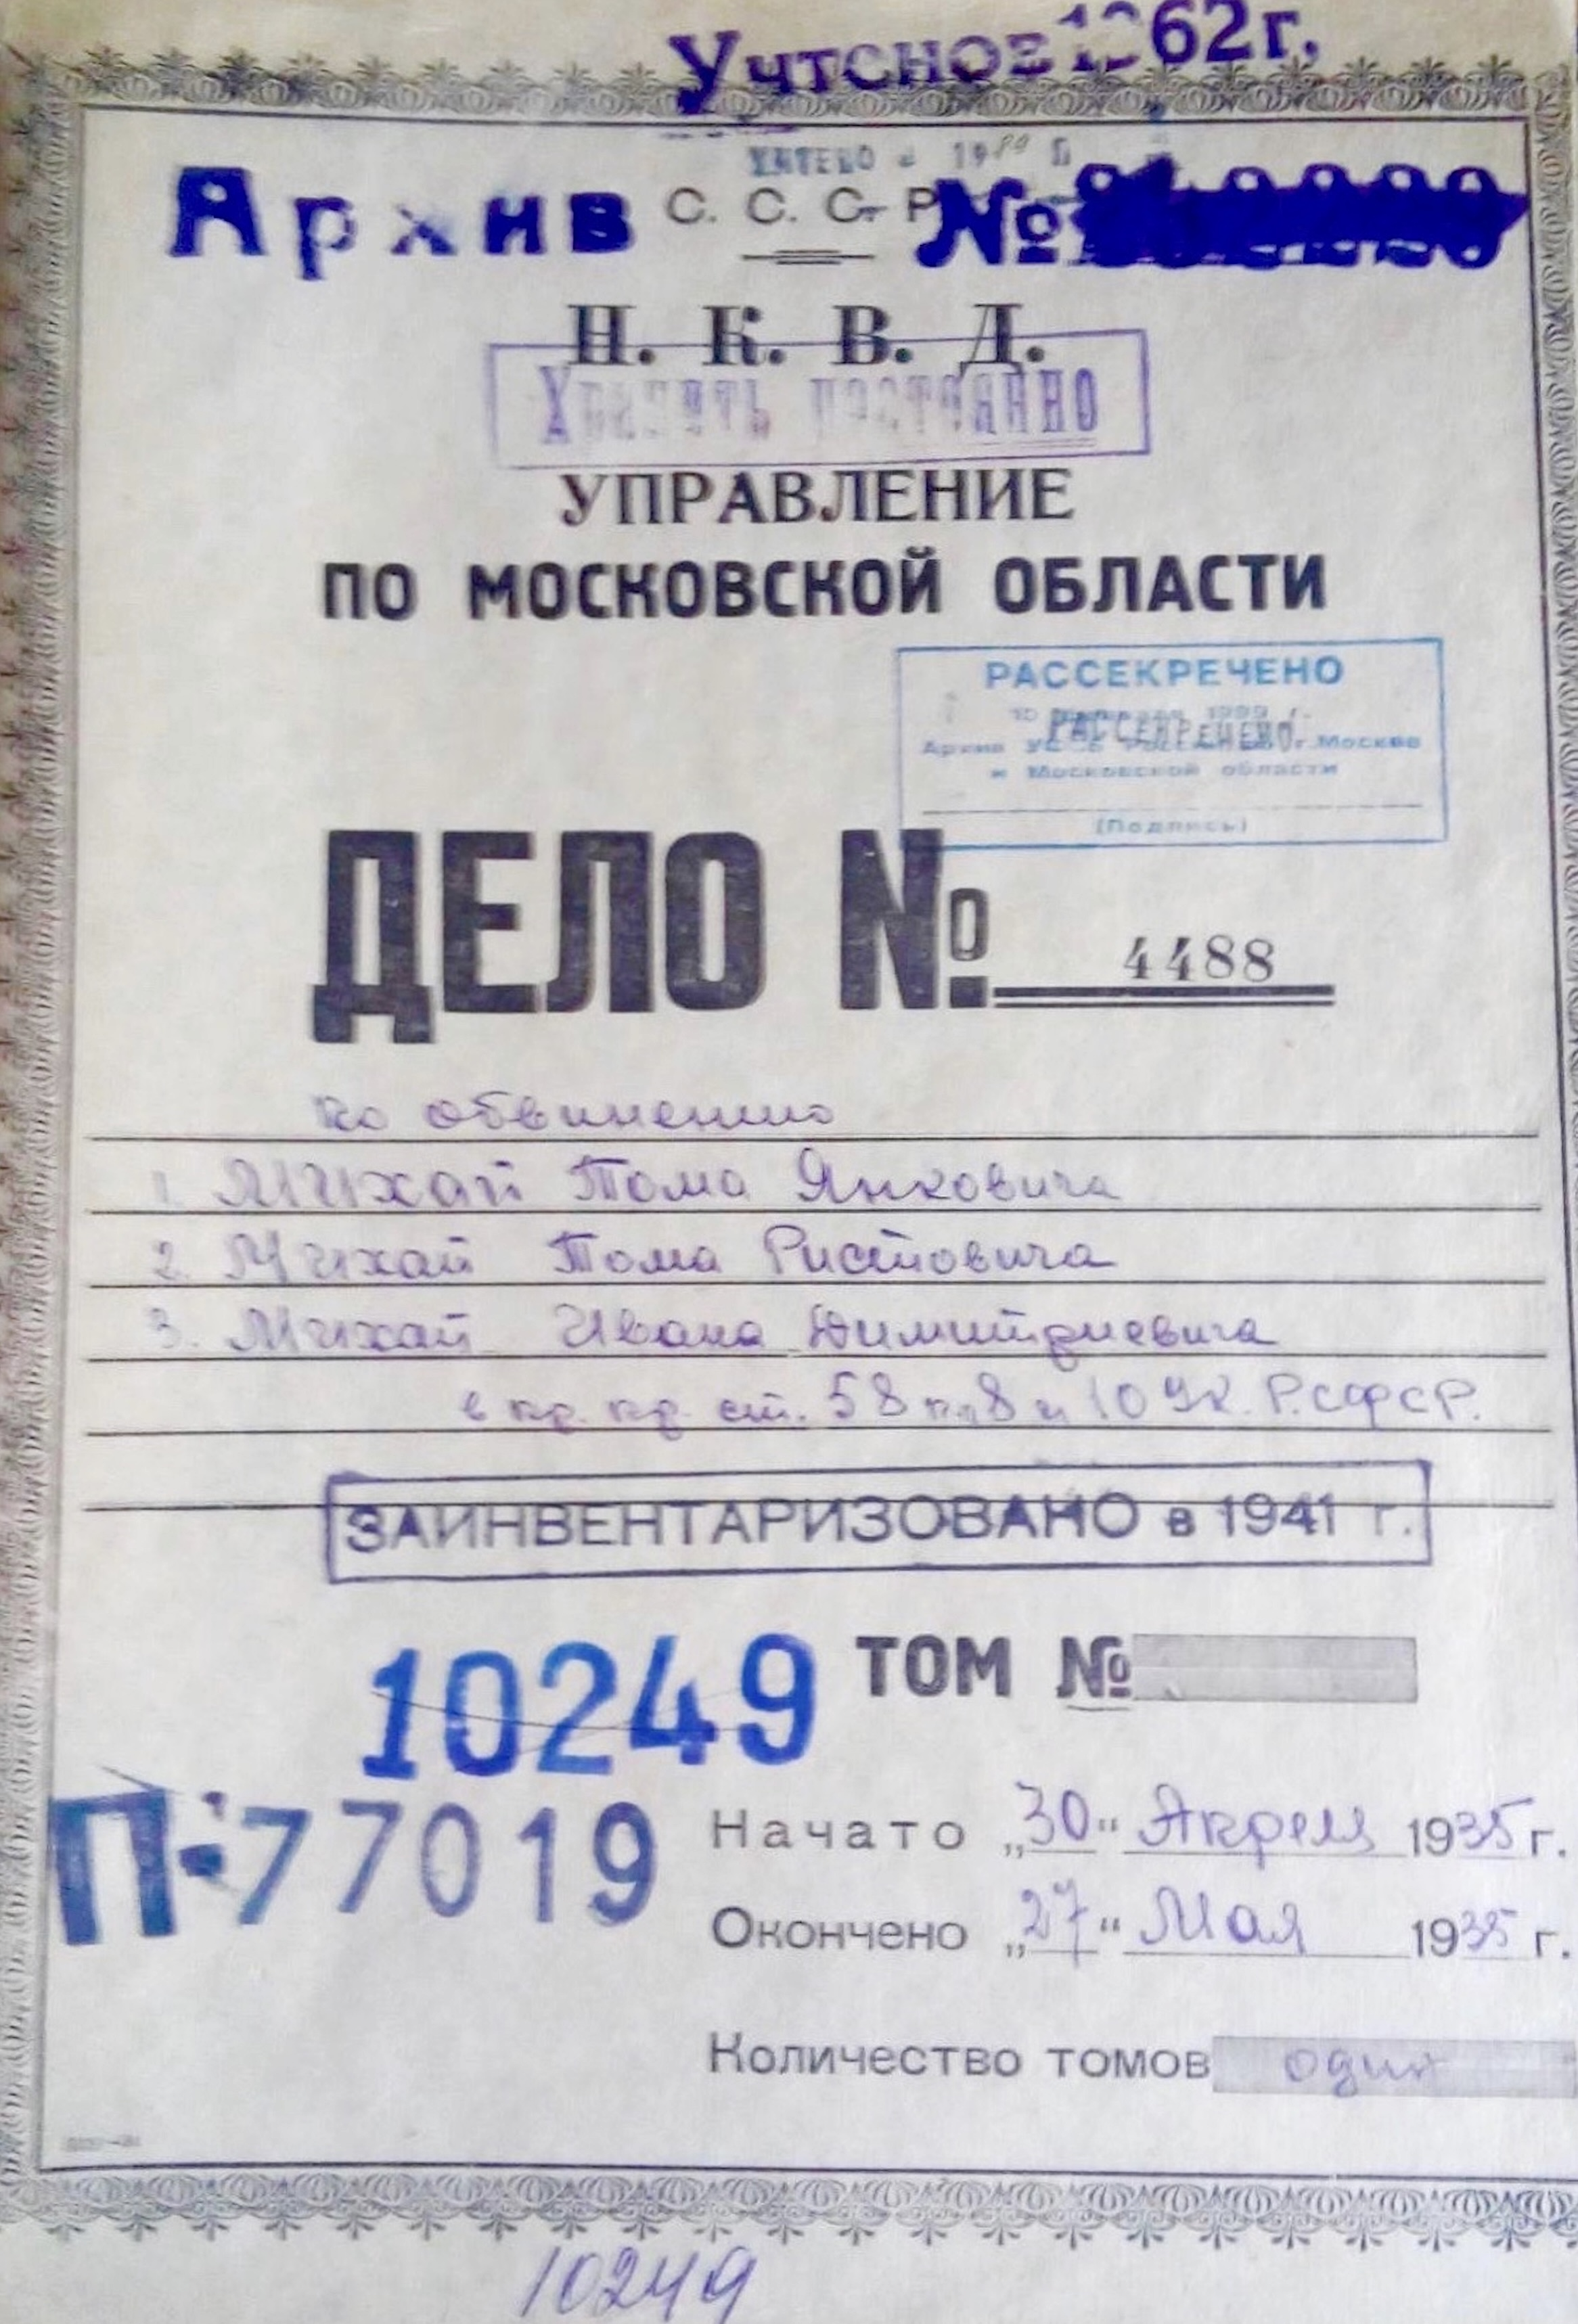 Учтено в 1962г.
Архив №
С. С. С. Р.
Н. К. В. Д.
Хранить постоянно
УПРАВЛЕНИЕ
ПО МОСКОВСКОЙ ОБЛАСТИ
РАССЕКРЕЧЕНО
РАССЕКРЕЧЕНО
Архив УФСБ России по г.Москве
и Московской области
(Подпись)
ДЕЛО № 4488
по обвинению
1. Михай Тома Янковича
2. Михай Тома Ристовича
3. Михай Ивана Димитриевича
в пр. пр. ст. 58 п.п. 8 и 10 УК. РСФСР.
ЗАИНВЕНТАРИЗОВАНО в 1941 г.
10249 ТОМ №
П-77019
Начато „30“ Апреля 1935 г.
Окончено „27“ Мая 1935 г.
Количество томов один
10249